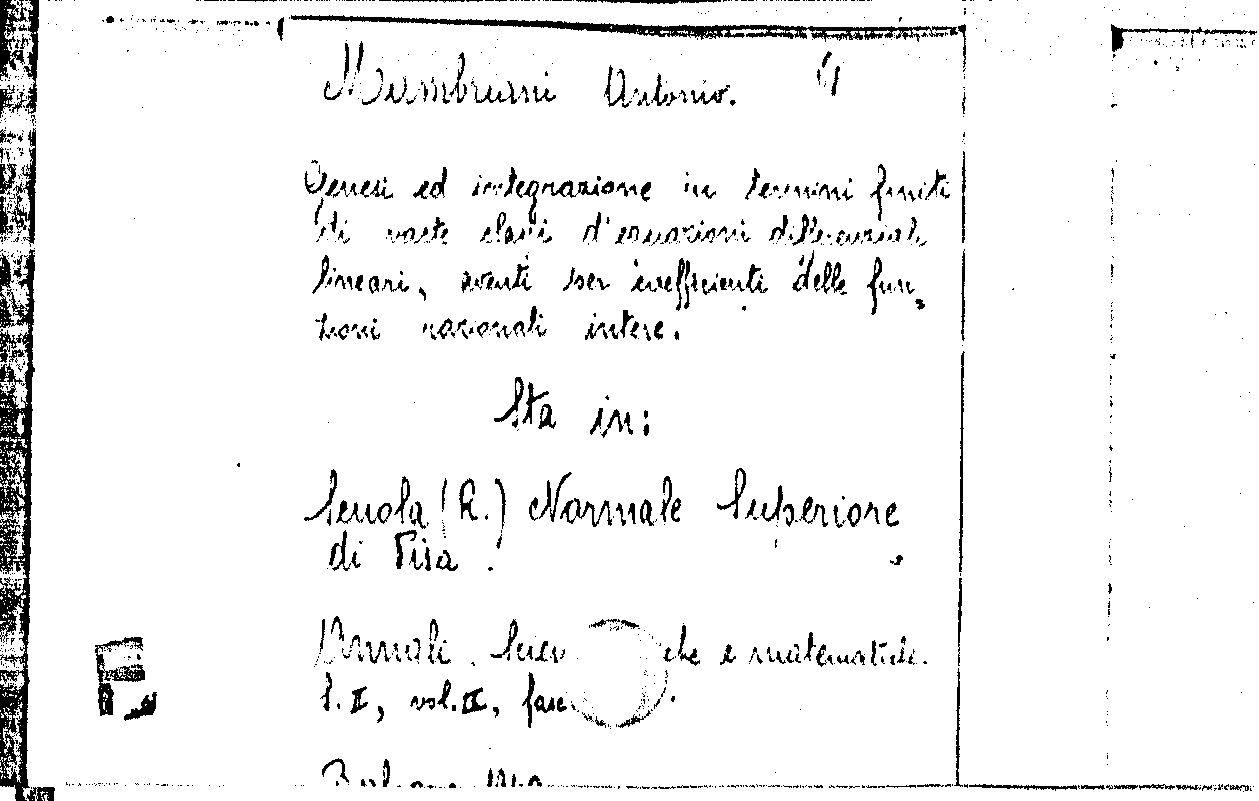 Mambriani Antonio.
Genesi ed integrazione in termini finiti
di vaste classi d'equazioni differenziali
lineari, aventi per coefficienti delle fun,
zioni razionali intere.
Sta in:
Scuola (R.) Normale Superiore
di Pisa.
Annali. che e matematiche.
S. II, vol. IX, fasc
Bologna 1940